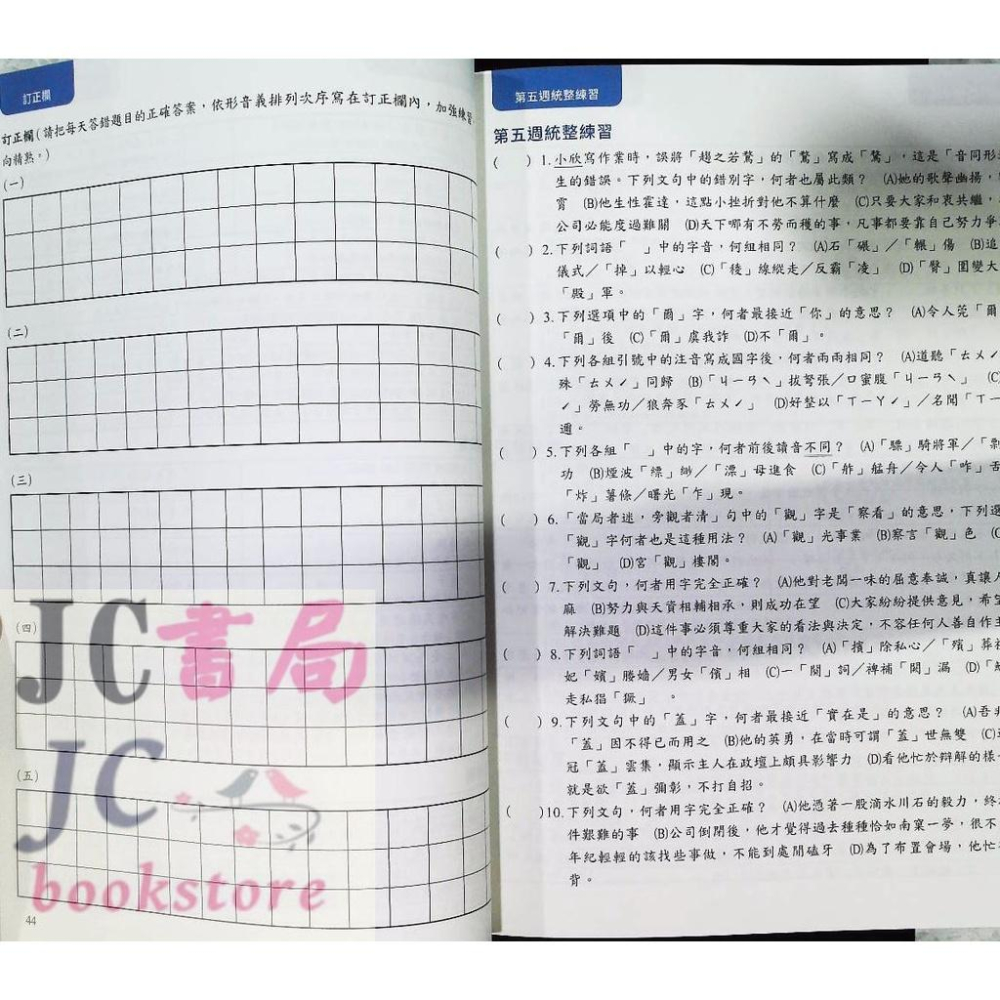 訂正欄
訂正欄(請把每天答錯題目的正確答案，依形音義排列次序寫在訂正欄內，加強練習
向精熟。)
(一)
(二)
(三)
(四)
(五)
44
JC書局
JC
bookstore
第五週統整練習
第五週統整練習
(　)1.小欣寫作業時，誤將「趨之若鶩」的「鶩」寫成「騖」，這是「音同形
生的錯誤。下列文句中的錯別字，何者也屬此類？ (A)她的歌聲幽揚，
霄 (B)他生性霍達，這點小挫折對他不算什麼 (C)只要大家和衷共繼，
公司必能度過難關 (D)天下哪有不勞而穫的事，凡事都要靠自己努力爭
(　)2.下列詞語「　」中的字音，何組相同？ (A)石「碾」／「輾」傷 (B)追
儀式／「掉」以輕心 (C)「稜」線縱走／反霸「凌」 (D)「臀」圍變大
「殿」軍。
(　)3.下列選項中的「爾」字，何者最接近「你」的意思？ (A)令人莞「爾
「爾」後 (C)「爾」虞我詐 (D)不「爾」。
(　)4.下列各組引號中的注音寫成國字後，何者兩兩相同？ (A)道聽「ㄊㄨˊ
殊「ㄊㄨˊ」同歸 (B)「ㄐㄧㄢˋ」拔弩張／口蜜腹「ㄐㄧㄢˋ」 (C)
ˊ」勞無功／狼奔豕「ㄊㄨˊ」 (D)好整以「ㄒㄧㄚˊ」／名聞「ㄒㄧ
邇。
(　)5.下列各組「　」中的字，何者前後讀音不同？ (A)「驃」騎將軍／「剽
功 (B)煙波「縹」緲／「漂」母進食 (C)「舴」艋舟／令人「咋」舌
「炸」薯條／曙光「乍」現。
(　)6.「當局者迷，旁觀者清」句中的「觀」字是「察看」的意思，下列選
「觀」字何者也是這種用法？ (A)「觀」光事業 (B)察言「觀」色 (C)
「觀」 (D)宮「觀」樓閣。
(　)7.下列文句，何者用字完全正確？ (A)他對老闆一味的屈意奉誠，真讓人
麻 (B)努力與天資相輔相承，則成功在望 (C)大家紛紛提供意見，希望
解決難題 (D)這件事必須尊重大家的看法與決定，不容任何人善自作主
(　)8.下列詞語「　」中的字音，何組相同？ (A)「擯」除私心／「殯」葬
妃「嬪」媵嬙／男女「儐」相 (C)一「闋」詞／裨補「闕」漏 (D)「
走私猖「獗」　。
(　)9.下列文句中的「蓋」字，何者最接近「實在是」的意思？ (A)吾
「蓋」因不得已而用之 (B)他的英勇，在當時可謂「蓋」世無雙 (C)
冠「蓋」雲集，顯示主人在政壇上頗具影響力 (D)看他忙於辯解的樣
就是欲「蓋」彌彰，不打自招。
(　)10.下列文句，何者用字完全正確？ (A)他憑著一股滴水川石的毅力，終
件艱難的事 (B)公司倒閉後，他才覺得過去種種恰如南窠一夢，很不
年紀輕輕的該找些事做，不能到處閒磕牙 (D)為了布置會場，他忙
背。